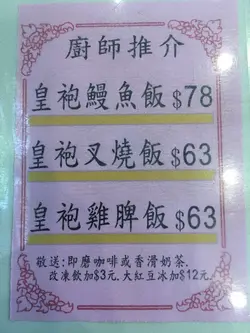 廚師推介
皇袍鰻魚飯$78
皇袍叉燒飯$63
皇袍雞脾飯$63
敬送:即磨咖啡或香滑奶茶.
改凍飲加$3元.大紅豆冰加$12元.